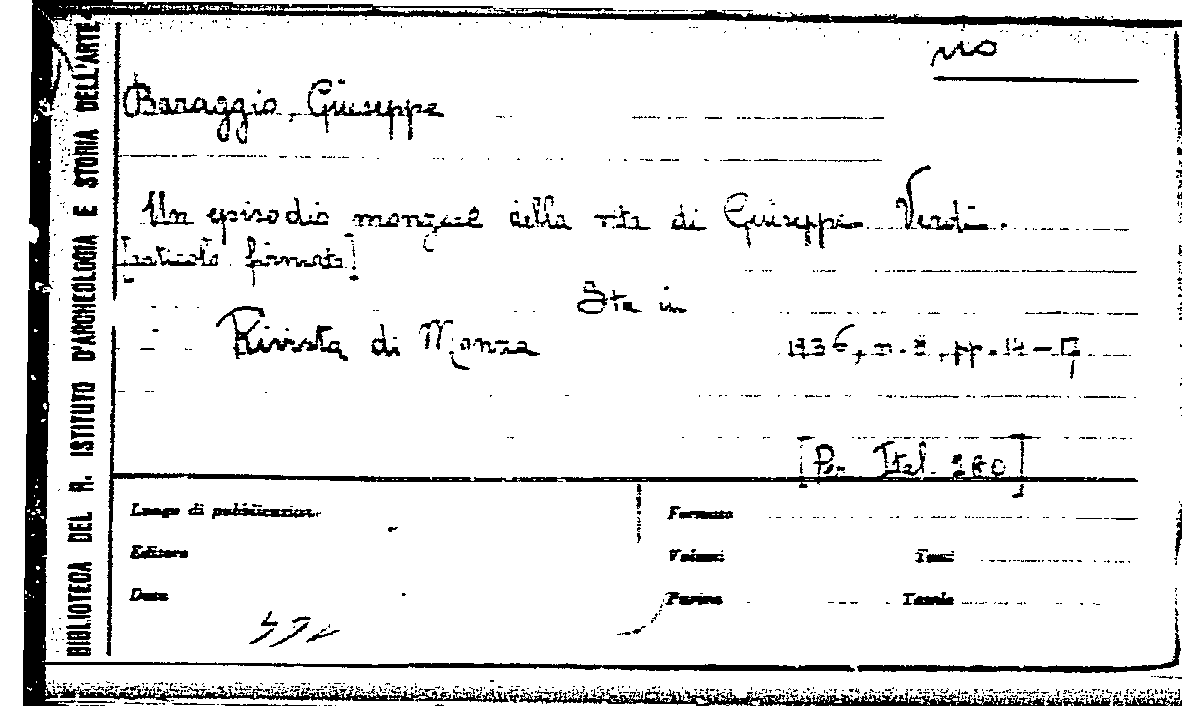 no
BIBLIOTECA DEL R. ISTITUTO D'ARCHEOLOGIA E STORIA DELL'ARTE
Baraggio, Giuseppe
Un episodio monzese della vita di Giuseppe Verdi.
[articolo firmato]
Sta in
Rivista di Monza 1936, n. 8, pp. 14-17
[Per Ital. 280]
Luogo di pubblicazione
Formato
Editore
Volumi Tomi
Data
Pagine Tavole